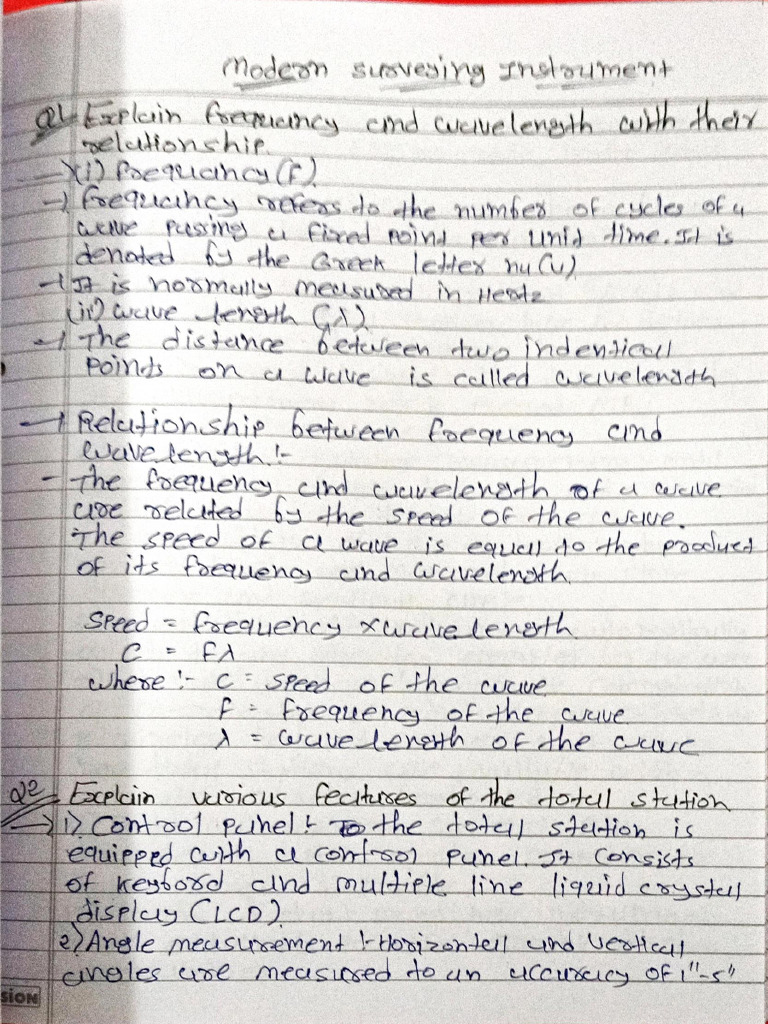 Modern surveying Instrument
Q1 Explain frequancy and wavelength with their
relationship.
→ (i) frequancy (F)
→ frequancy refers to the number of cycles of a
wave passing a fixed point per unit time. It is
denoted by the Greek letter nu (ν)
→ It is normally measured in Hertz
(ii) wave length (λ)
→ The distance between two indentical
points on a wave is called wavelength
→ Relationship between frequency and
wave length :-
- The frequency and wavelength of a wave
are related by the speed of the wave.
The speed of a wave is equal to the product
of its frequency and wavelength.
Speed = frequency x wave length
C = Fλ
where :- C = speed of the wave
F = frequency of the wave
λ = wave length of the wave
Q2 Explain various features of the total station
→ 1) Control panel :- The total station is
equipped with a control panel. It consists
of keybord and multiple line liquid crystal
display (LCD)
2) Angle measurement :- Horizontal and vertical
angles are measured to an accuracy of 1"-5"
SION